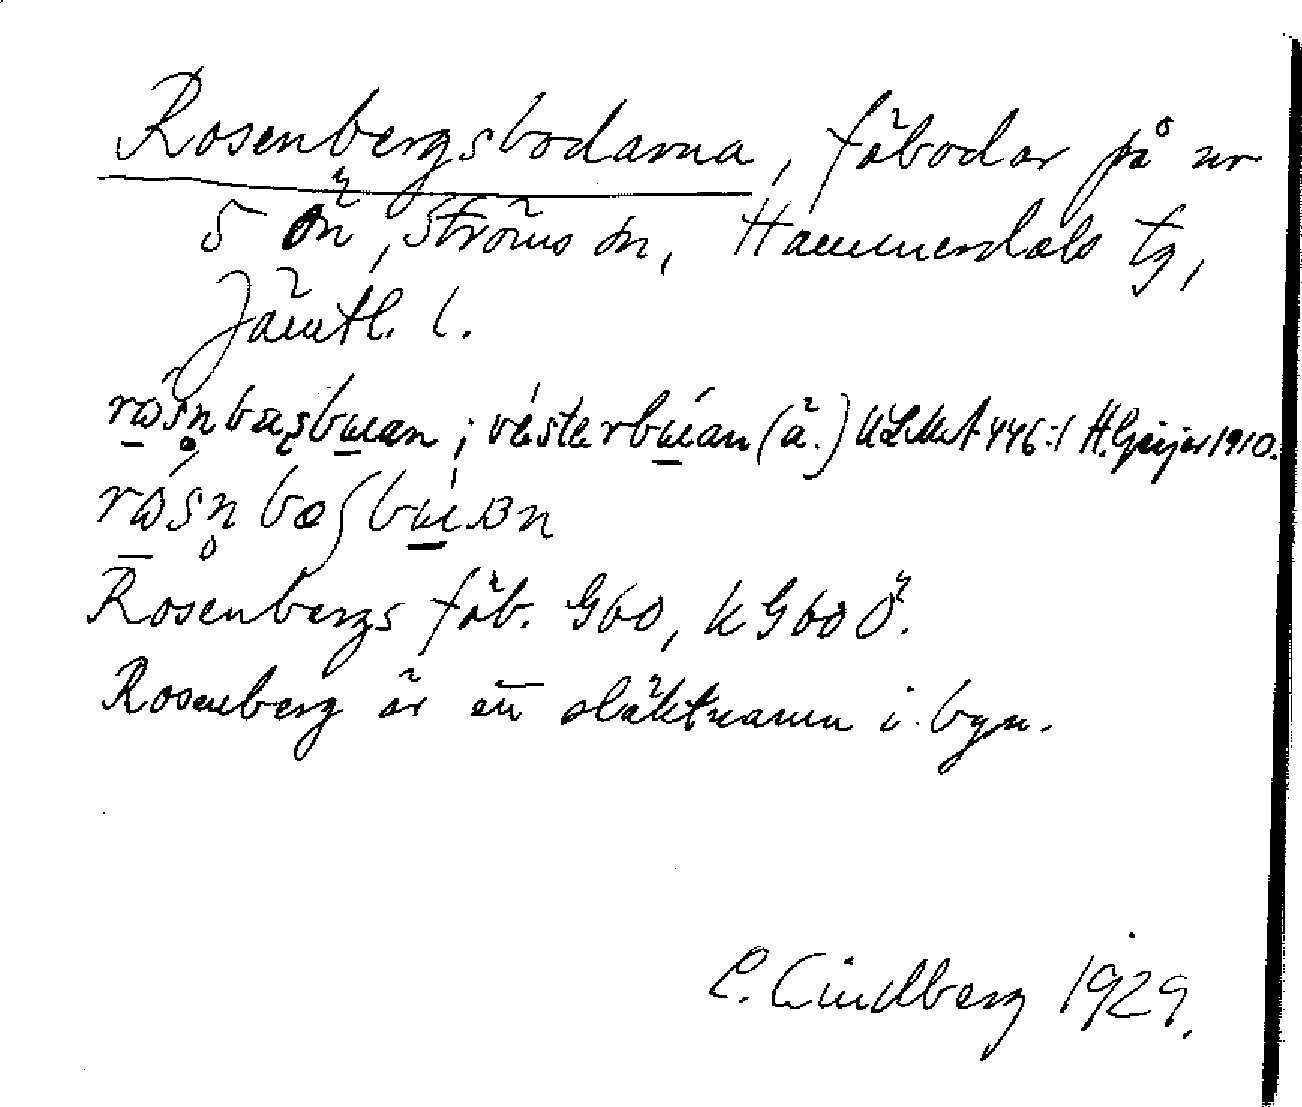 Rosenbergsbodarna, fäbodar på nr
5 Ön, Ströms sn, Hammerdals tg,
Jämtl. l.
vésterbúan (ä.) ULMA 446:1 H. Geijer 1910.
Rosenbergs fäb. G60, k G60 Ö.
Rosenberg är ett släktnamn i byn.
C. Lindberg 1929.